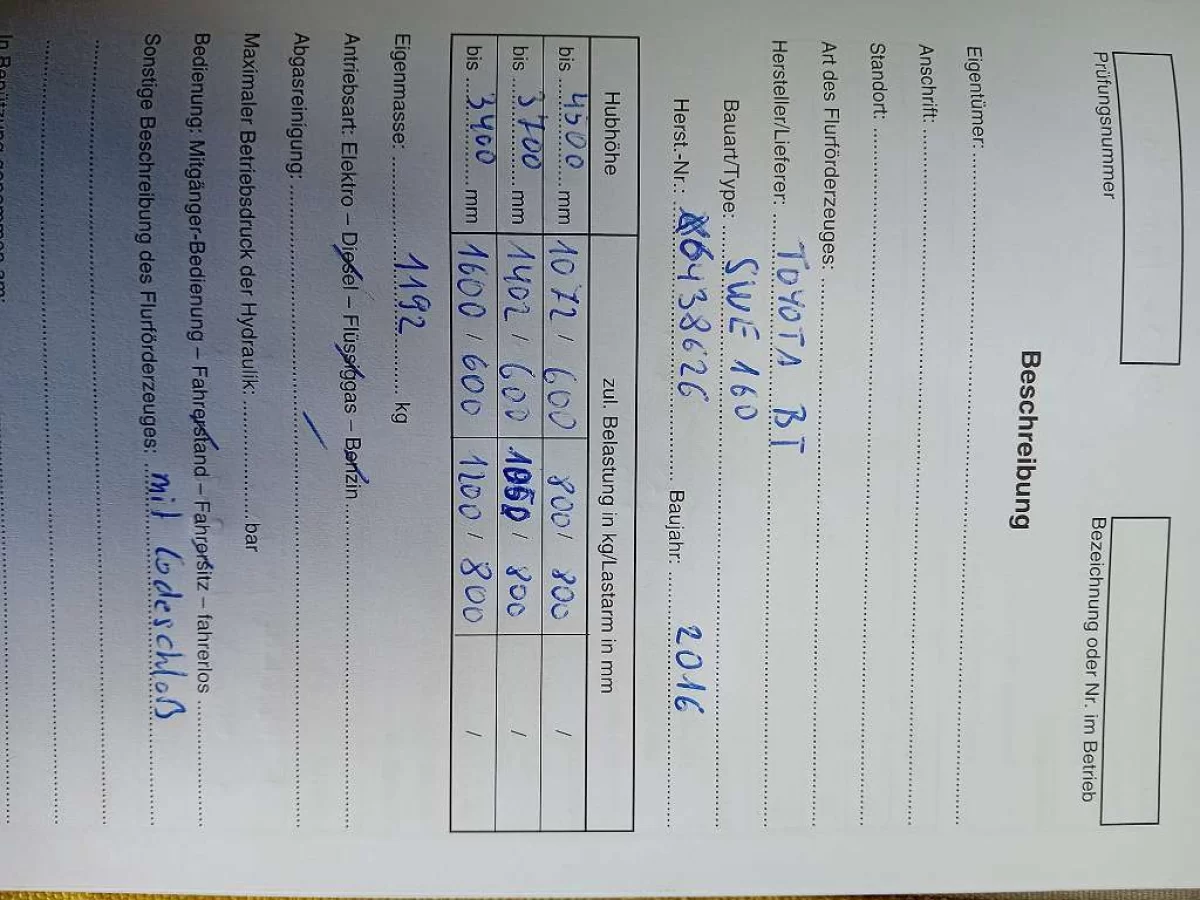 Prüfungsnummer Bezeichnung oder Nr. im Betrieb
Beschreibung
Eigentümer:
Anschrift:
Standort:
Art des Flurförderzeuges:
Hersteller/Lieferer: TOYOTA BT
Bauart/Type: SWE 160
Herst.-Nr.: 6438626 Baujahr: 2016
Hubhöhe zul. Belastung in kg/Lastarm in mm
bis 4500 mm 1072 / 600 800 / 800 /
bis 3700 mm 1402 / 600 1050 / 800 /
bis 3400 mm 1600 / 600 1200 / 800 /
Eigenmasse: 1192 kg
Antriebsart: Elektro – Diesel – Flüssiggas – Benzin
Abgasreinigung: /
Maximaler Betriebsdruck der Hydraulik: bar
Bedienung: Mitgänger-Bedienung – Fahrerstand – Fahrersitz – fahrerlos
Sonstige Beschreibung des Flurförderzeuges: mit Codeschloß